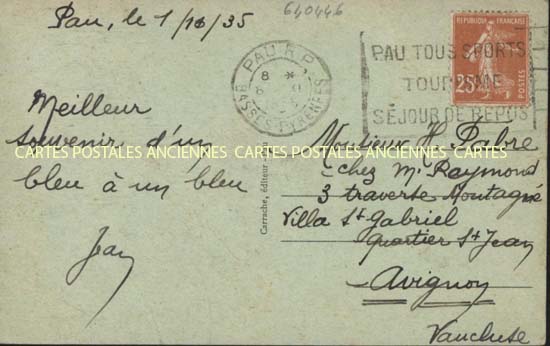 Pau, le 1/10/35
640446
PAU R.P.
BASSES-PYRENEES
REPUBLIQUE FRANÇAISE
25c
PAU TOUS SPORTS
TOURISME
SÉJOUR DE REPOS
Meilleur
souvenir d'un
bleu à un bleu
Jean
CARTES POSTALES ANCIENNES CARTES POSTALES ANCIENNES CARTES POSTALES ANCIENNES
Carrache, éditeur
Monsieur H. Rabre
chez Mr Raymond
3 traverse Montagné
Villa St Gabriel
quartier St Jean
Avignon
Vaucluse